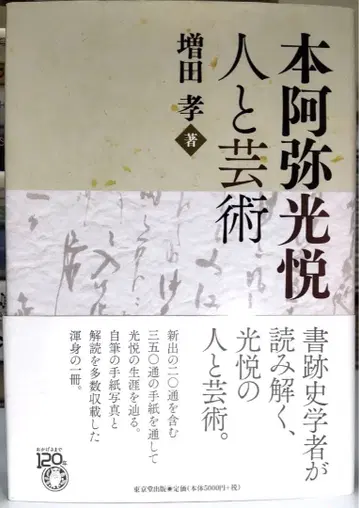 本阿弥光悦
人と芸術
増田 孝 著
書跡史学者が
読み解く、
光悦の
人と芸術。
新出の二〇通を含む
三五〇通の手紙を通して
光悦の生涯を辿る。
自筆の手紙写真と
解読を多数収載した
渾身の一冊。
おかげさまで
120年
東京堂出版●定価(本体5000円+税)